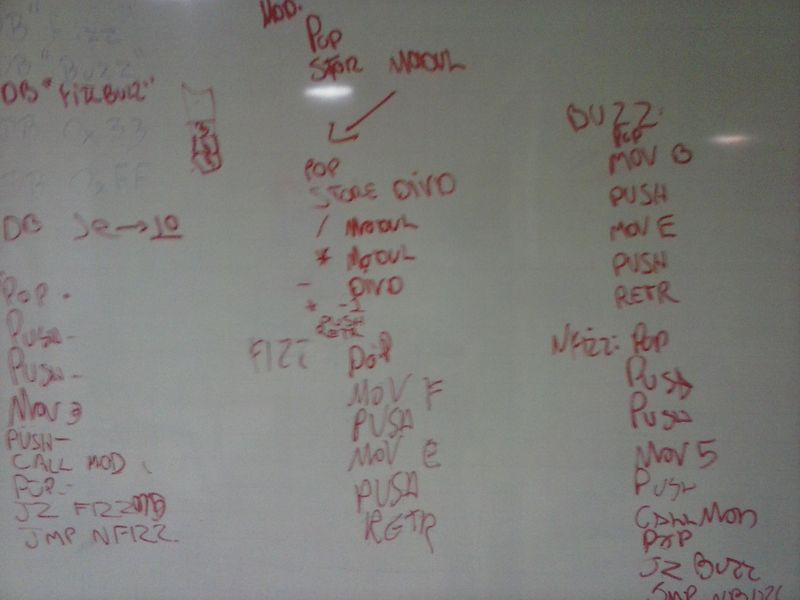 DB "Fizz"
DB "Buzz"
DB "FizzBuzz"
DB 0x33
DB 0xFF
DB
POP
PUSH
PUSH
MOV 3
PUSH
CALL MOD
POP
JZ FIZZ
JMP NFIZZ
MOD:
POP
STOR MODUL
POP
STORE DIVD
/ MODUL
* MODUL
- DIVD
* -1
PUSH
RETR
FIZZ
POP
MOV F
PUSH
MOV E
PUSH
RETR
BUZZ:
POP
MOV B
PUSH
MOV E
PUSH
RETR
NFIZZ: POP
PUSH
PUSH
MOV 5
PUSH
CALL MOD
POP
JZ BUZZ
JMP NBUZZ